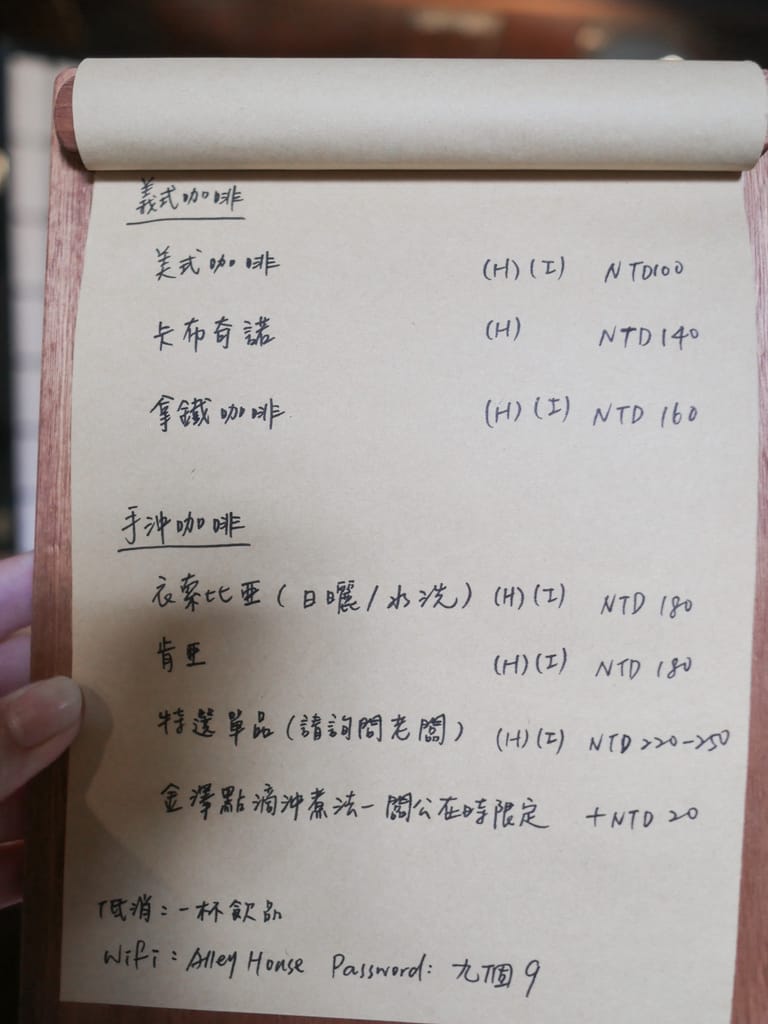 義式咖啡
美式咖啡 (H) (I) NTD100
卡布奇諾 (H) NTD 140
拿鐵咖啡 (H) (I) NTD 160
手沖咖啡
衣索比亞 (日曬/水洗) (H) (I) NTD 180
肯亞 (H) (I) NTD 180
特選單品 (請詢問老闆) (H) (I) NTD 220-250
金澤點滴沖煮法-闆公在時限定 +NTD 20
低消:一杯飲品
Wifi: Alley House Password: 九個9